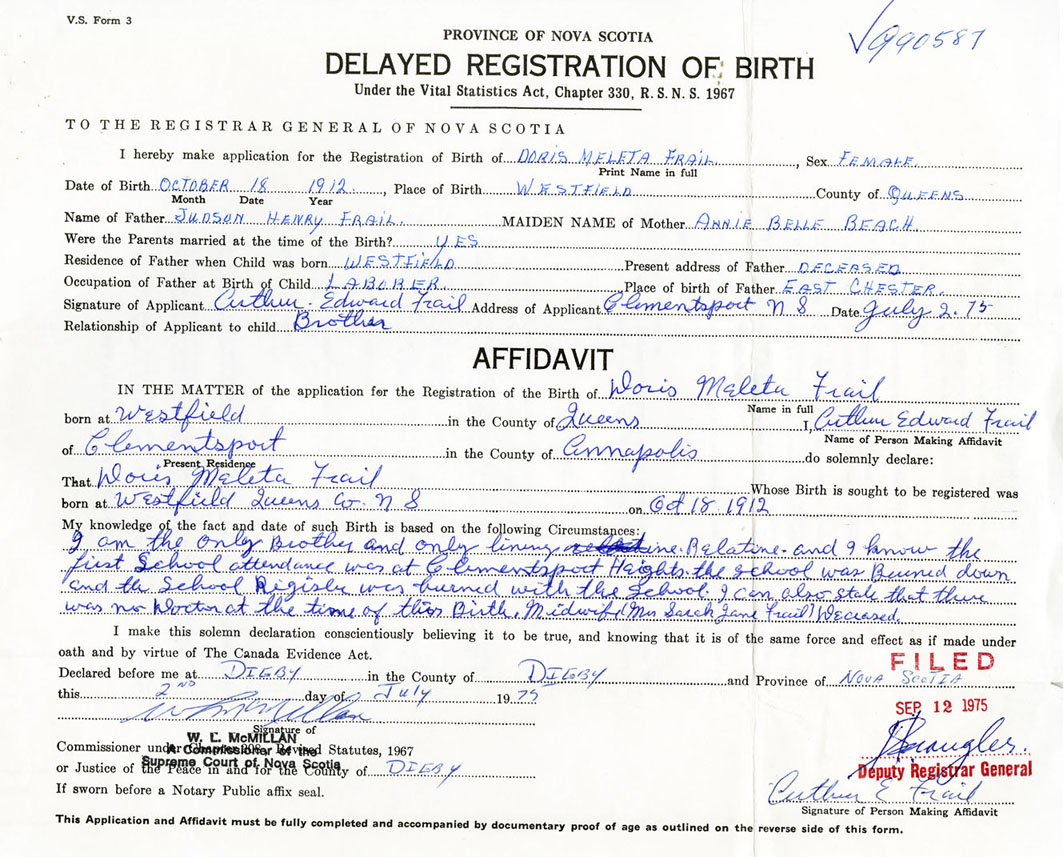 V.S. Form 3
990587
PROVINCE OF NOVA SCOTIA
DELAYED REGISTRATION OF BIRTH
Under the Vital Statistics Act, Chapter 330, R.S.N.S. 1967
TO THE REGISTRAR GENERAL OF NOVA SCOTIA
I hereby make application for the Registration of Birth of DORIS MELETA FRAIL, Sex FEMALE
Print Name in full
Date of Birth OCTOBER 18 1912, Place of Birth WESTFIELD County of QUEENS
Month Date Year
Name of Father JUDSON HENRY FRAIL. MAIDEN NAME of Mother ANNIE BELLE BEACH
Were the Parents married at the time of the Birth? YES
Residence of Father when Child was born WESTFIELD Present address of Father DECEASED
Occupation of Father at Birth of Child LABORER Place of birth of Father EAST CHESTER.
Signature of Applicant Arthur Edward Frail Address of Applicant Clementsport N S Date July 2. 75
Relationship of Applicant to child Brother
AFFIDAVIT
IN THE MATTER of the application for the Registration of the Birth of Doris Meleta Frail
Name in full
born at Westfield in the County of Queens I, Arthur Edward Frail
Name of Person Making Affidavit
of Clementsport in the County of Annapolis do solemnly declare:
Present Residence
That Doris Meleta Frail Whose Birth is sought to be registered was
born at Westfield Queens Co. N S on Oct 18 1912
My knowledge of the fact and date of such Birth is based on the following Circumstances:
I am the only Brother and only living Relative. and I know the
first School attendance was at Clementsport Heights. the school was Burned down
and the School Register was burned with the School. I can also state that there
was no Doctor at the time of this Birth. Midwife (Mrs Sarah Jane Frail) Deceased.
I make this solemn declaration conscientiously believing it to be true, and knowing that it is of the same force and effect as if made under
oath and by virtue of The Canada Evidence Act.
Declared before me at DIGBY in the County of DIGBY and Province of NOVA SCOTIA
FILED
this 2ND day of July 1975
SEP 12 1975
W L McMillan
Signature of
W. L. McMILLAN
Commissioner under Chapter Revised Statutes, 1967
A Commissioner of the
Supreme Court of Nova Scotia
or Justice of the Peace in and for the County of DIGBY
Deputy Registrar General
Arthur E Frail
If sworn before a Notary Public affix seal.
Signature of Person Making Affidavit
This Application and Affidavit must be fully completed and accompanied by documentary proof of age as outlined on the reverse side of this form.